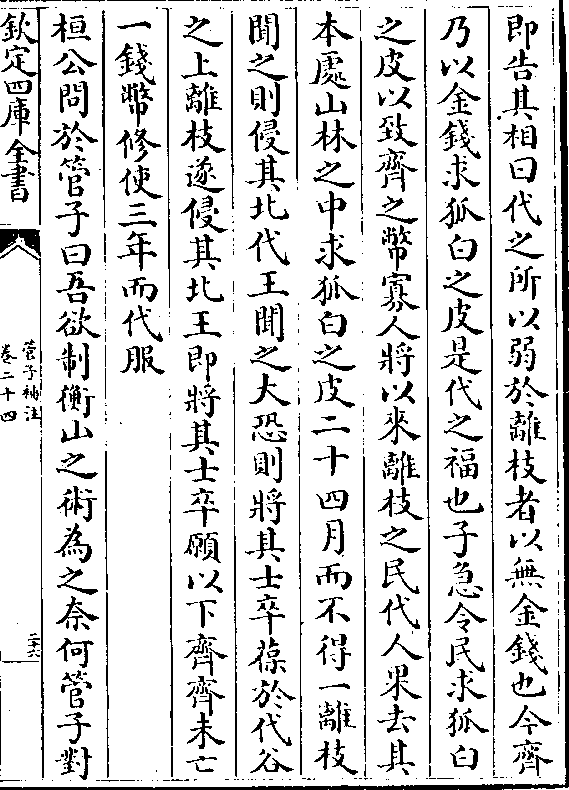 即告其相曰代之所以弱於離枝者以無金錢也今齊
乃以金錢求狐白之皮是代之福也子急令民求狐白
之皮以致齊之幣寡人將以來離枝之民代人果去其
本處山林之中求狐白之皮二十四月而不得一離枝
聞之則侵其北代王聞之大恐則將其士卒葆於代谷
之上離枝遂侵其北王即將其士卒願以下齊齊未亡
一錢幣修使三年而代服
桓公問於管子曰吾欲制衡山之術為之奈何管子對
欽定四庫全書
管子補注
卷二十四
二十六